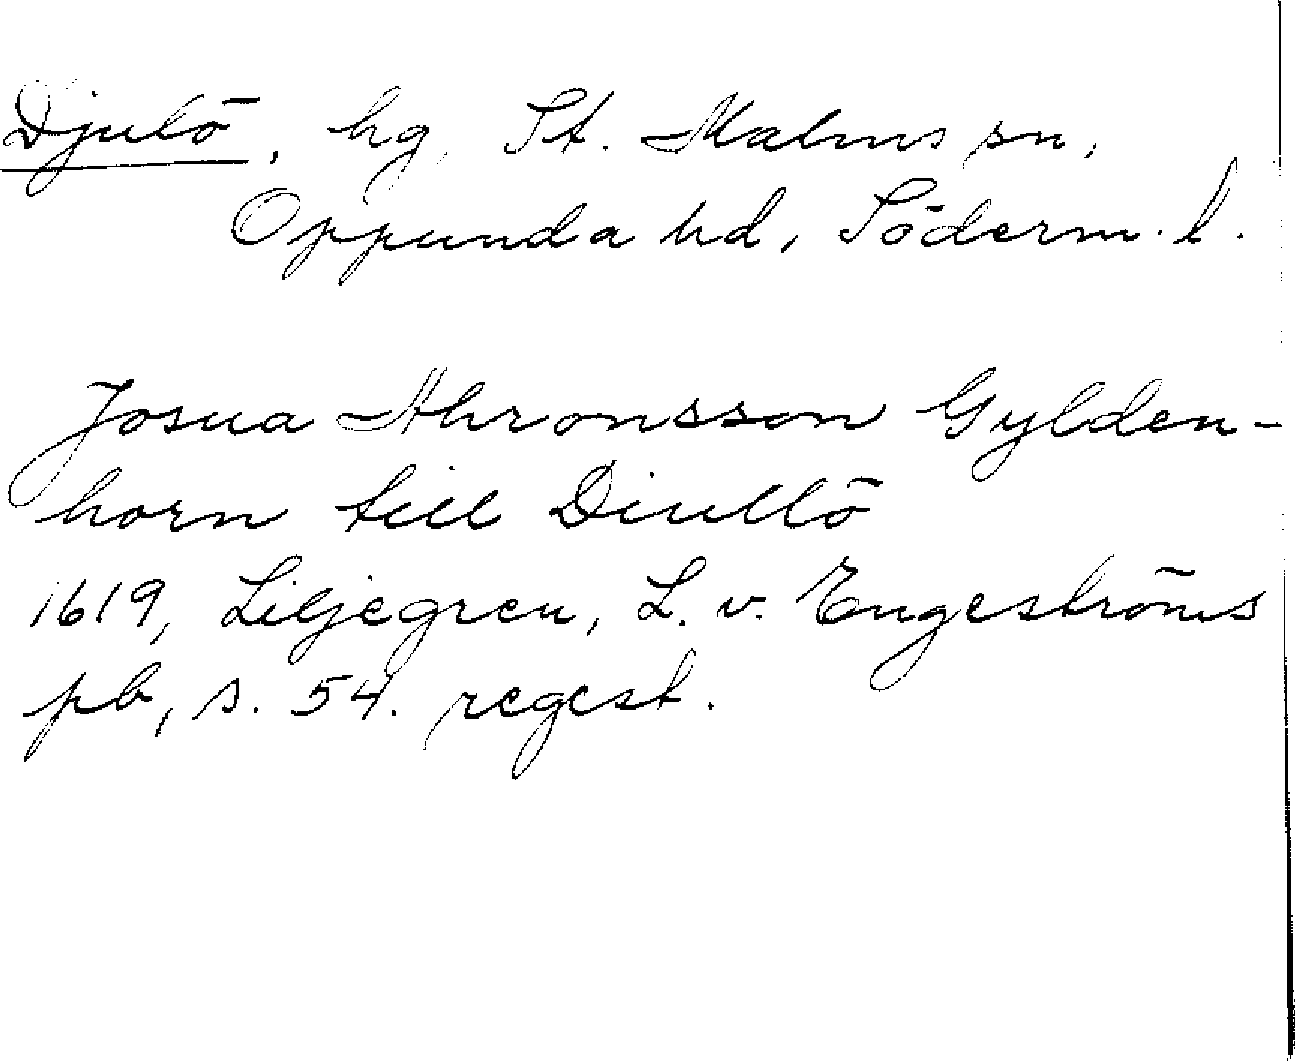 Djulö, hg, St. Malms sn,
Oppunda hd, Söderm. l.
Josua Ahronsson Gylden-
horn till Diullö
1619, Liljegren, L. v. Engeströms
pb, s. 54. regest.